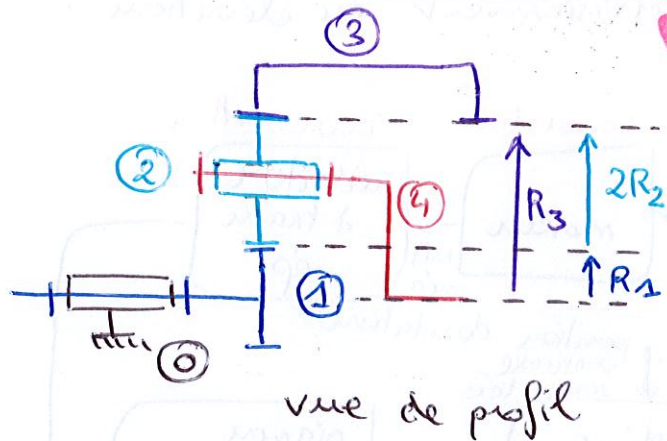 3
2
4
R3
2R2
1
R1
0
vue de profil